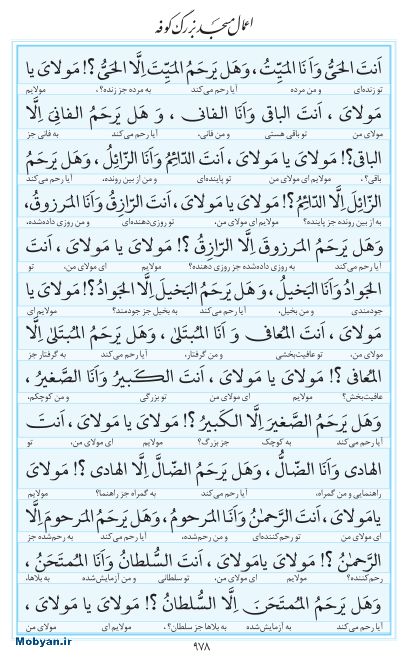 اعمال مسجد بزرگ کوفه
اَنتَ الحَیُّ وَ اَنَا المَیِّتُ، وَهَل یَرحَمُ المَیِّتَ اِلَّا الحَیُّ ؟! مَولایَ یا
تو زنده‌ای و من مرده آیا رحم می‌کند به مرده جز زنده؟، مولایم
مَولایَ ، اَنتَ الباقی وَاَنَا الفانی ، وَ هَل یَرحَمُ الفانِیَ اِلَّا
مولای من، تو باقی هستی و من فانی، آیا رحم می‌کند به فانی جز
الباقی؟! مَولایَ یا مَولایَ ، اَنتَ الدّائِمُ وَاَنَا الزّائِلُ ، وَهَل یَرحَمُ
باقی؟، مولایم ای مولای من، تو پاینده‌ای و من از بین رونده، آیا رحم می‌کند
الزّائِلَ اِلَّا الدّائِمُ ؟! مَولایَ یا مَولایَ، اَنتَ الرّازِقُ وَاَنَا المَرزوقُ،
به از بین رونده جز پاینده؟ مولایم ای مولای من، تو روزی‌دهنده‌ای و من روزی داده‌شده،
وَهَل یَرحَمُ المَرزوقَ اِلَّا الرّازِقُ ؟! مَولایَ یا مَولایَ ، اَنتَ
آیا رحم می‌کند به روزی داده‌شده جز روزی دهنده؟ مولایم ای مولای من، تو
الجَوادُ وَاَنَا البَخیلُ، وَهَل یَرحَمُ البَخیلَ اِلَّا الجَوادُ؟! مَولایَ یا
جودمندی و من بخیل، آیا رحم می‌کند به بخیل جز جودمند؟ مولایم ای
مَولایَ ، اَنتَ المُعافی وَ اَنَا المُبتَلیٰ، وَهَل یَرحَمُ المُبتَلیٰ اِلَّا
مولای من، تو عافیت‌بخشی و من گرفتار، آیا رحم می‌کند به گرفتار جز
المُعافی ؟! مَولایَ یا مَولایَ ، اَنتَ الکَبیرُ وَ اَنَا الصَّغیرُ ،
عافیت‌بخش؟ مولایم ای مولای من، تو بزرگی و من کوچکم،
وَهَل یَرحَمُ الصَّغیرَ اِلَّا الکَبیرُ ؟! مَولایَ یا مَولایَ ، اَنتَ
آیا رحم می‌کند به کوچک جز بزرگ؟ مولایم ای مولای من، تو
الهادی وَاَنَا الضّالُّ ، وَهَل یَرحَمُ الضّالَّ اِلَّا الهادی ؟! مَولایَ
راهنمایی و من گمراه، آیا رحم می‌کند به گمراه جز راهنما؟ مولایم
یامَولایَ، اَنتَ الرَّحمٰنُ وَاَنَا المَرحومُ، وَهَل یَرحَمُ المَرحومَ اِلَّا
ای مولای من تو رحم‌کننده‌ای و من رحم‌شده، آیا رحم می‌کند به رحم‌شده جز
الرَّحمٰنُ ؟! مَولایَ یامَولایَ ، اَنتَ السُّلطانُ وَاَنَا المُمتَحَنُ ،
رحم‌کننده؟ مولایم ای مولای من، تو سلطانی و من آزمایش‌شده به بلاها،
وَهَل یَرحَمُ المُمتَحَنَ اِلَّا السُّلطانُ ؟! مَولایَ یا مَولایَ ،
آیا رحم می‌کند به آزمایش‌شده به بلاها جز سلطان؟، مولایم ای مولای من،
۹۷۸
Mobyan.ir